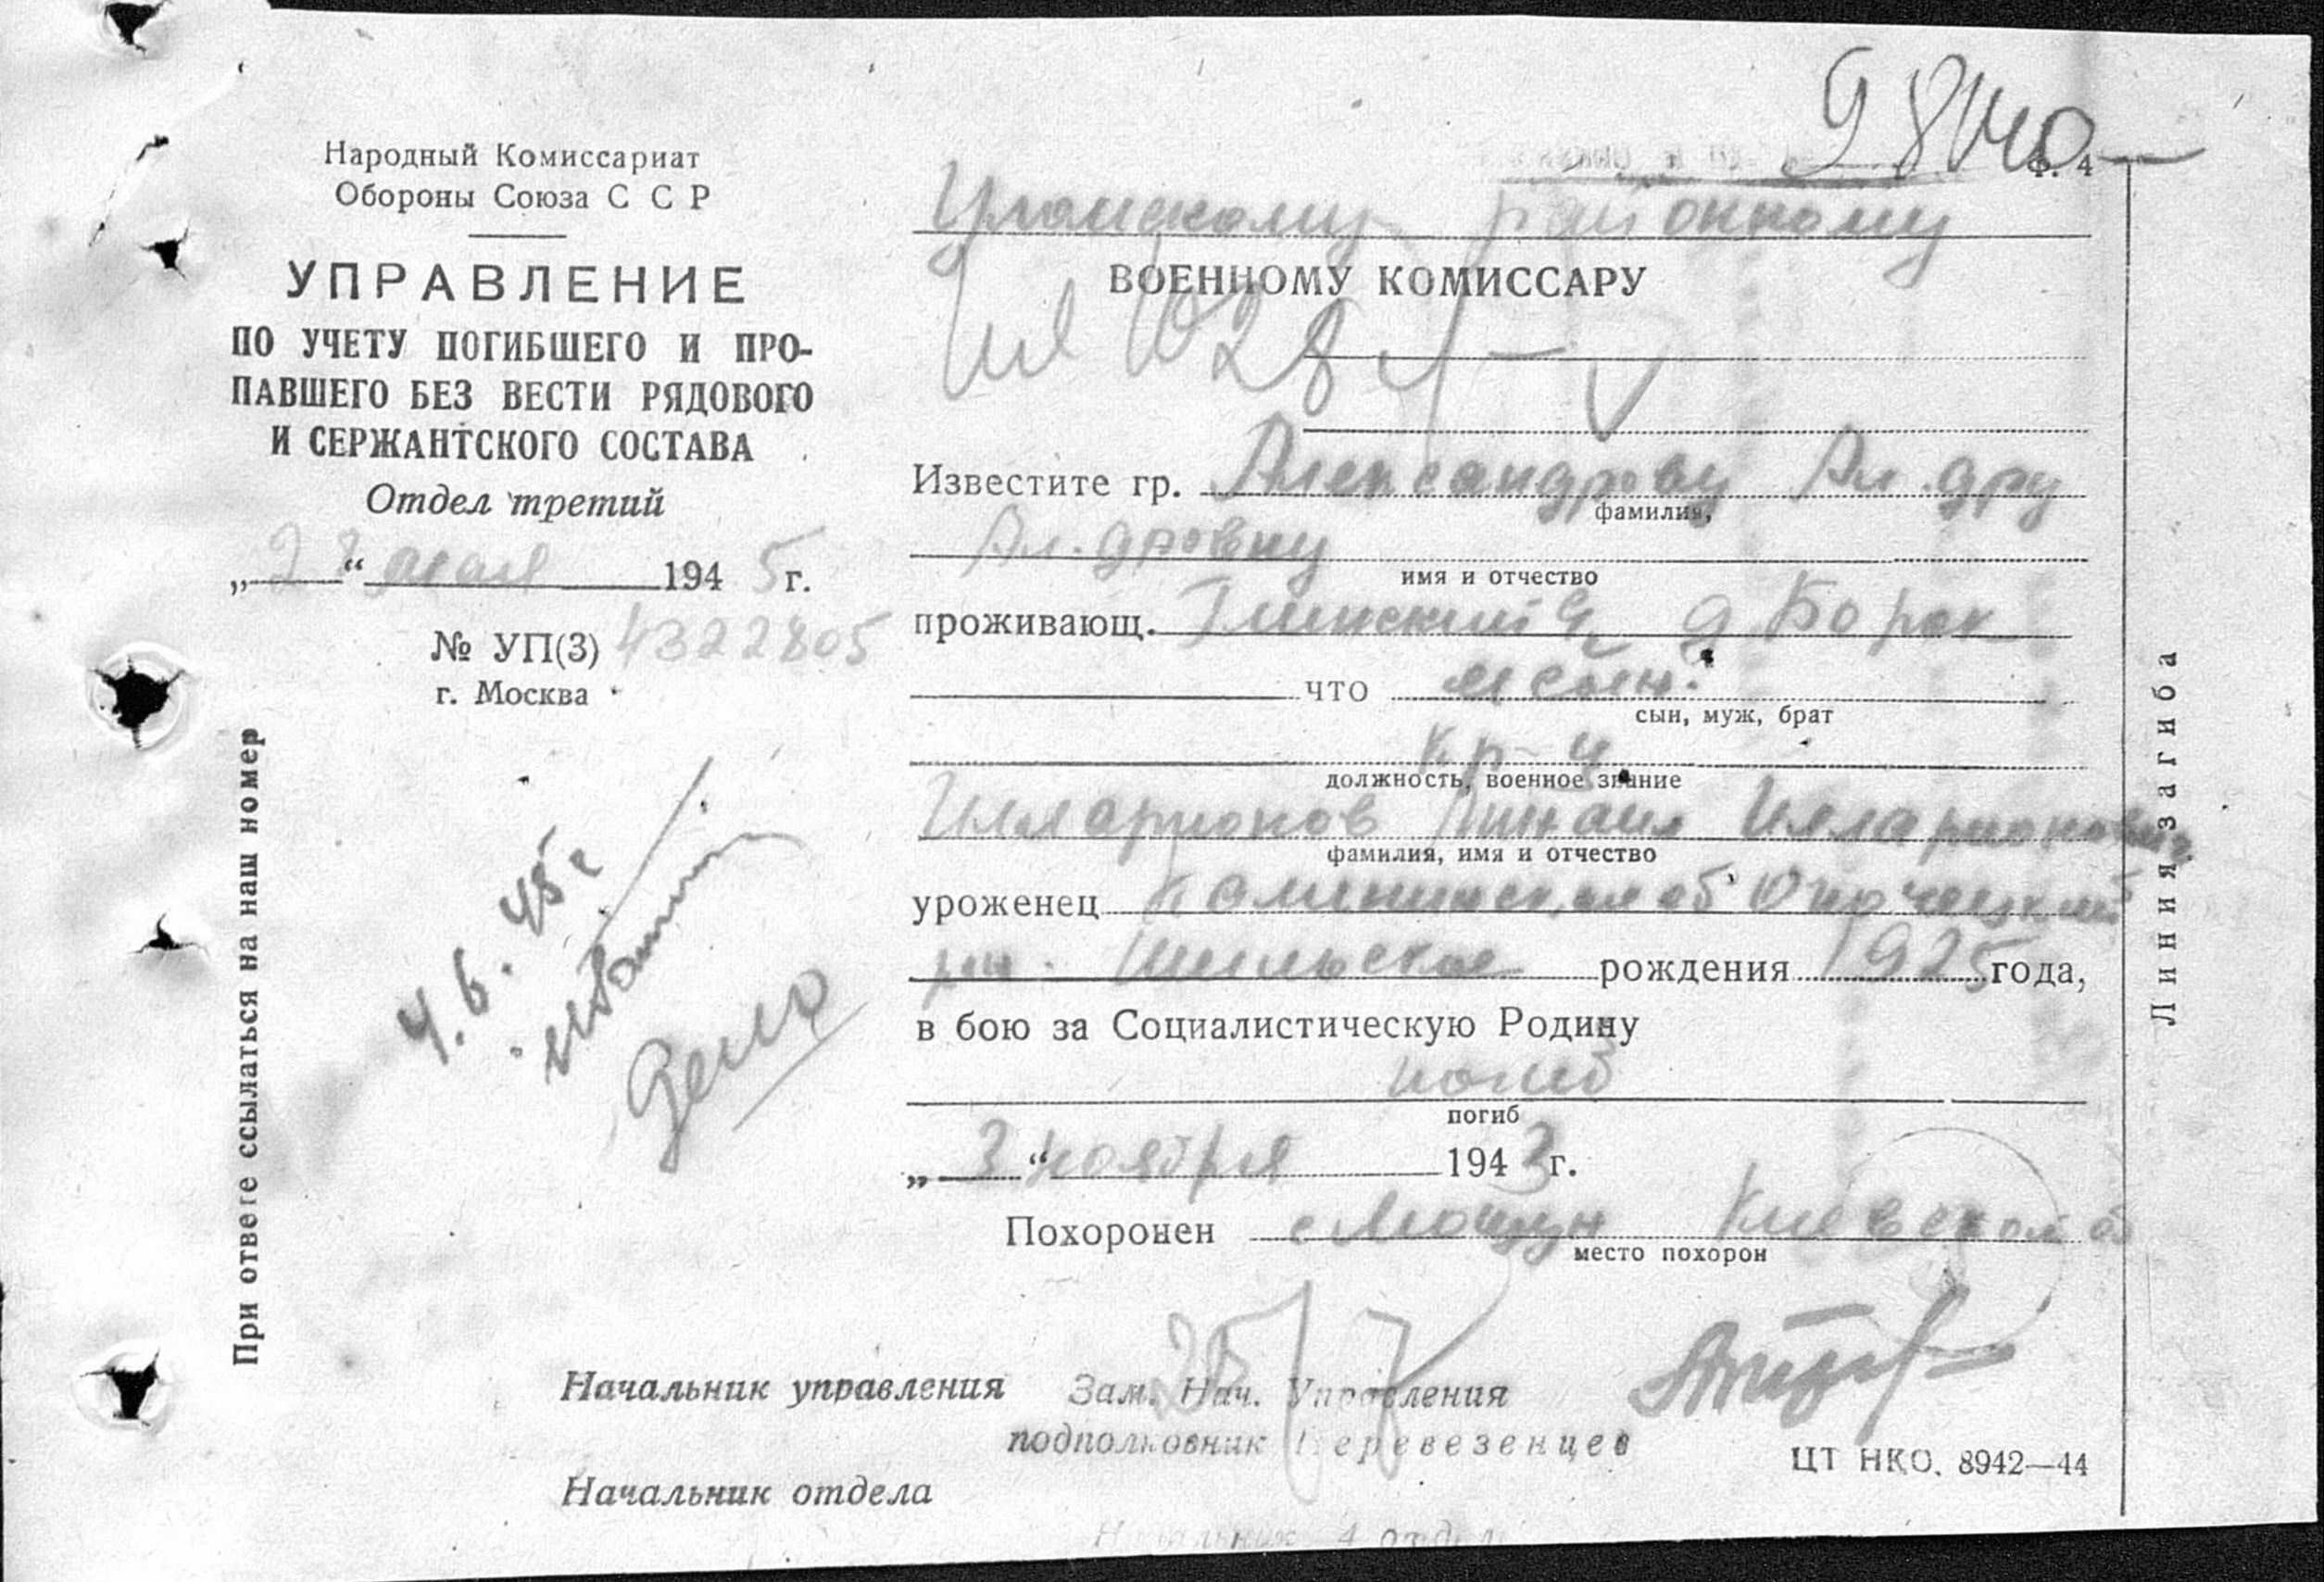 98140
Народный Комиссариат
Обороны Союза С С Р
УПРАВЛЕНИЕ
ПО УЧЕТУ ПОГИБШЕГО И ПРО-
ПАВШЕГО БЕЗ ВЕСТИ РЯДОВОГО
И СЕРЖАНТСКОГО СОСТАВА
Отдел третий
„ 2 “ мая 1945 г.
№ УП(3) 4322805
г. Москва
При ответе ссылаться на наш номер
4.6.45г
Дело
Ф. 4
районному
ВОЕННОМУ КОМИССАРУ
Известите гр. Александрову Ал.дру
фамилия,
Ал.дровну
имя и отчество
проживающ. д. Борок
что сын.
сын, муж, брат
кр-ц
должность, военное звание
Илларионов Михаил Илларионович
фамилия, имя и отчество
уроженец Калининская об Опочецкий
рн. рождения 1925 года,
в бою за Социалистическую Родину
погиб
погиб
„ 3 “ ноября 1943 г.
Похоронен с Мощун Киевской об
место похорон
25/7
Начальник управления Зам. Нач. Управления
подполковник Перевезенцев
Начальник отдела
ЦТ НКО. 8942—44
Начальник 4 отдела
Линия загиба